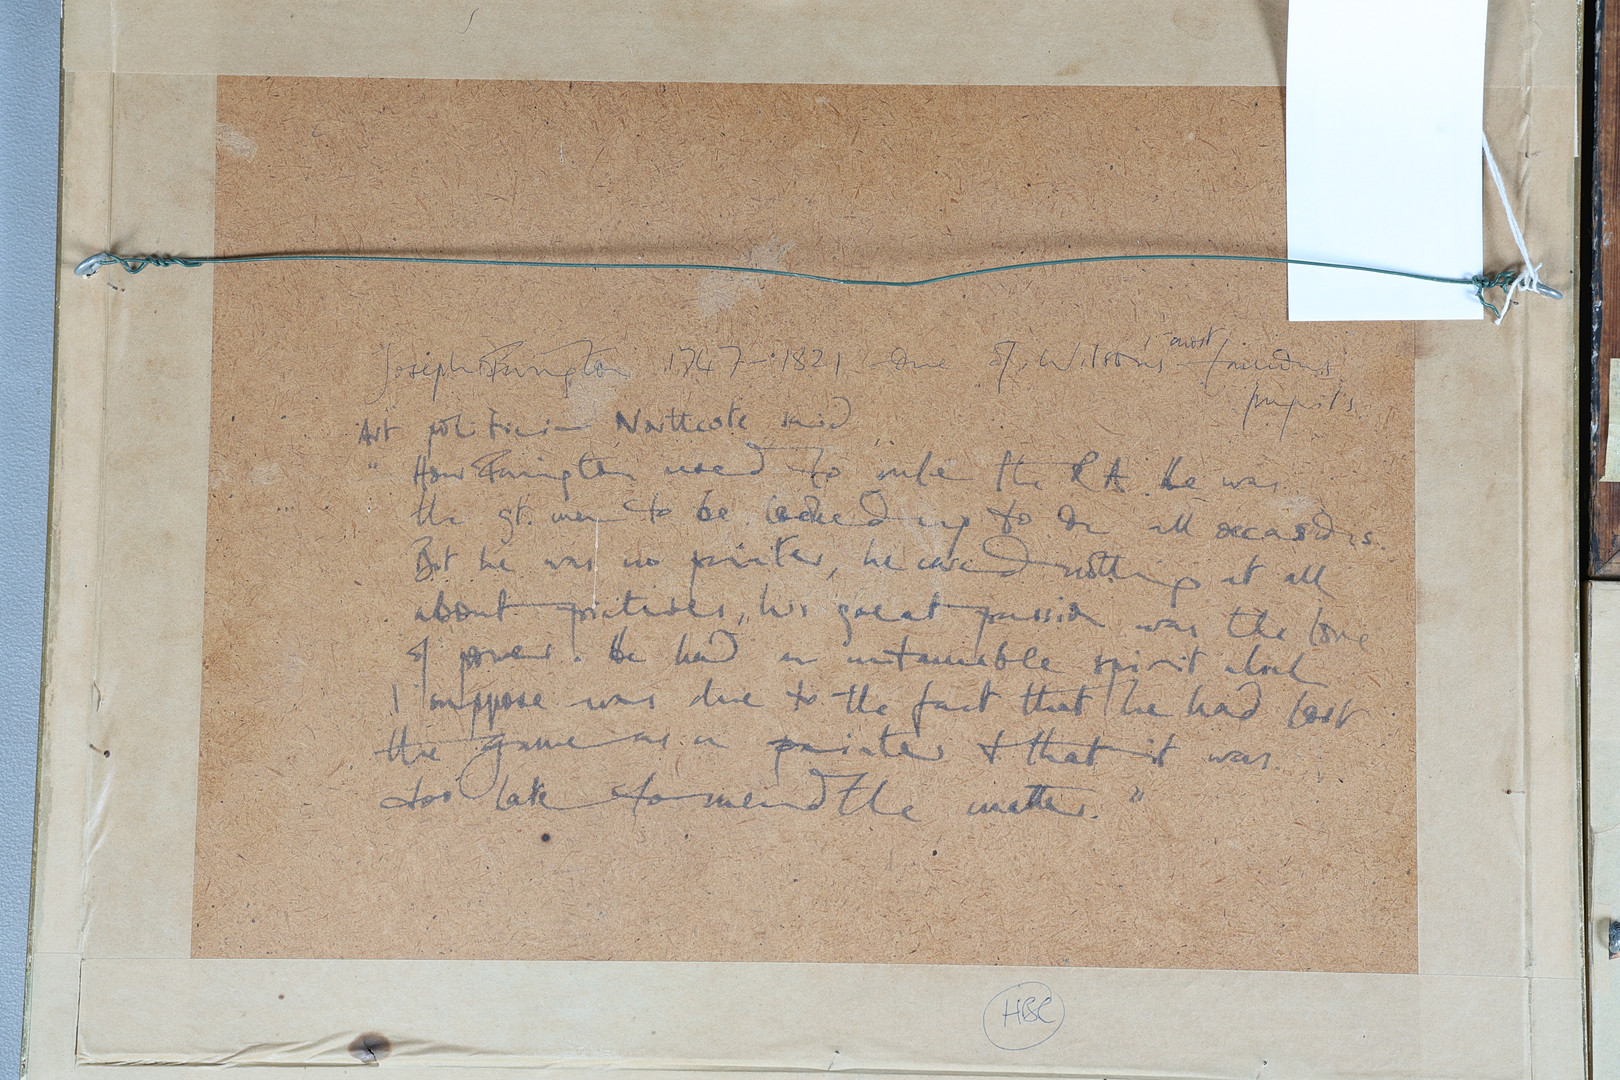 Joseph Farington 1747-1821 One of Wilson's most famous
pupils.
Art politician Northcote said
"How Farington used to rule the RA. He was
the gt. man to be looked up to on all occasions.
But he was no painter, he cared nothing at all
about pictures, his great passion was the love
of power. He had an untameable spirit which
I suppose was due to the fact that he had lost
the game as a painter & that it was
too late to mend the matter."
HBC